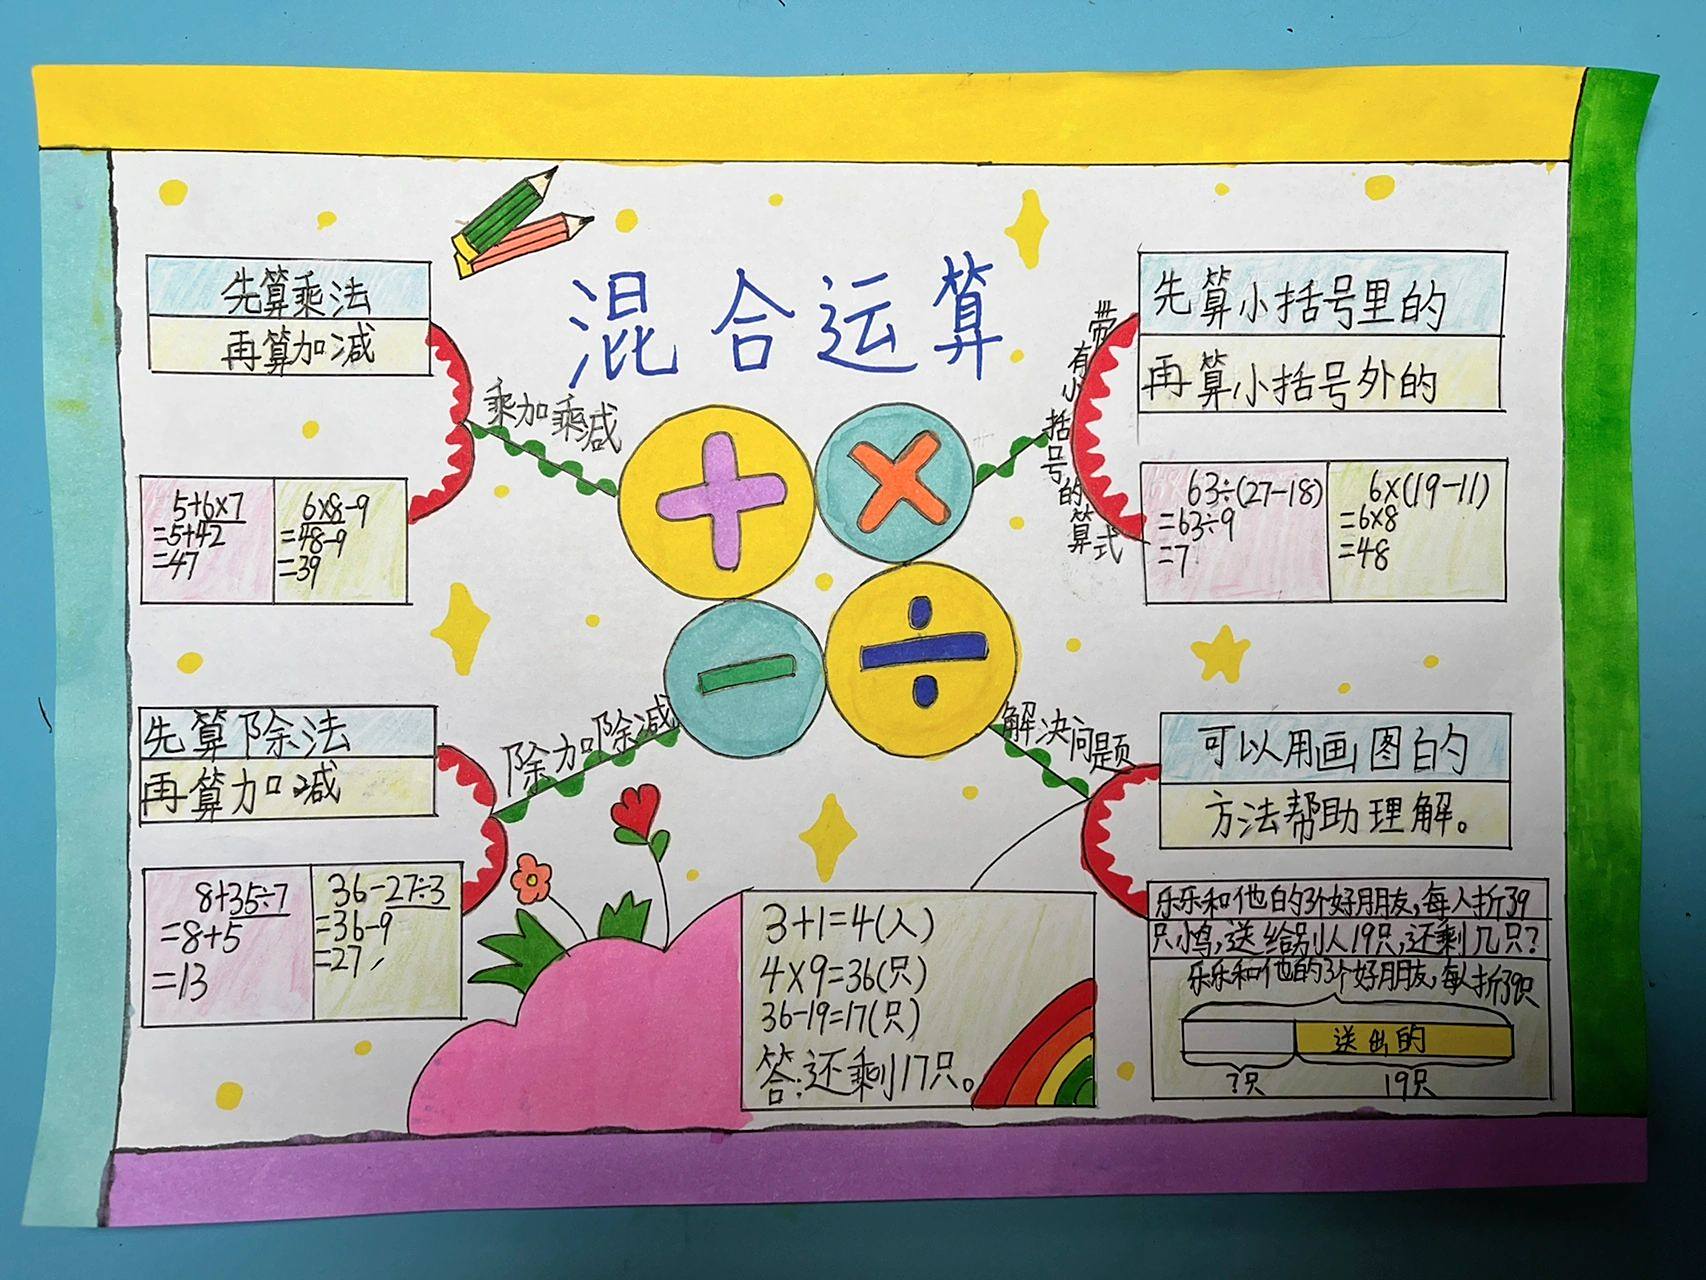 混合运算
先算乘法
再算加减
乘加乘减
5+6×7
=5+42
=47
6×8-9
=48-9
=39
带有小括号的算式
先算小括号里的
再算小括号外的
63÷(27-18)
=63÷9
=7
6×(19-11)
=6×8
=48
除加除减
先算除法
再算加减
8+35÷7
=8+5
=13
36-27÷3
=36-9
=27
解决问题
可以用画图的
方法帮助理解。
乐乐和他的3个好朋友,每人折39
只小鸟,送给别人19只,还剩几只?
乐乐和他的3个好朋友,每人折39只
送出的
?只
19只
3+1=4(人)
4×9=36(只)
36-19=17(只)
答:还剩17只。